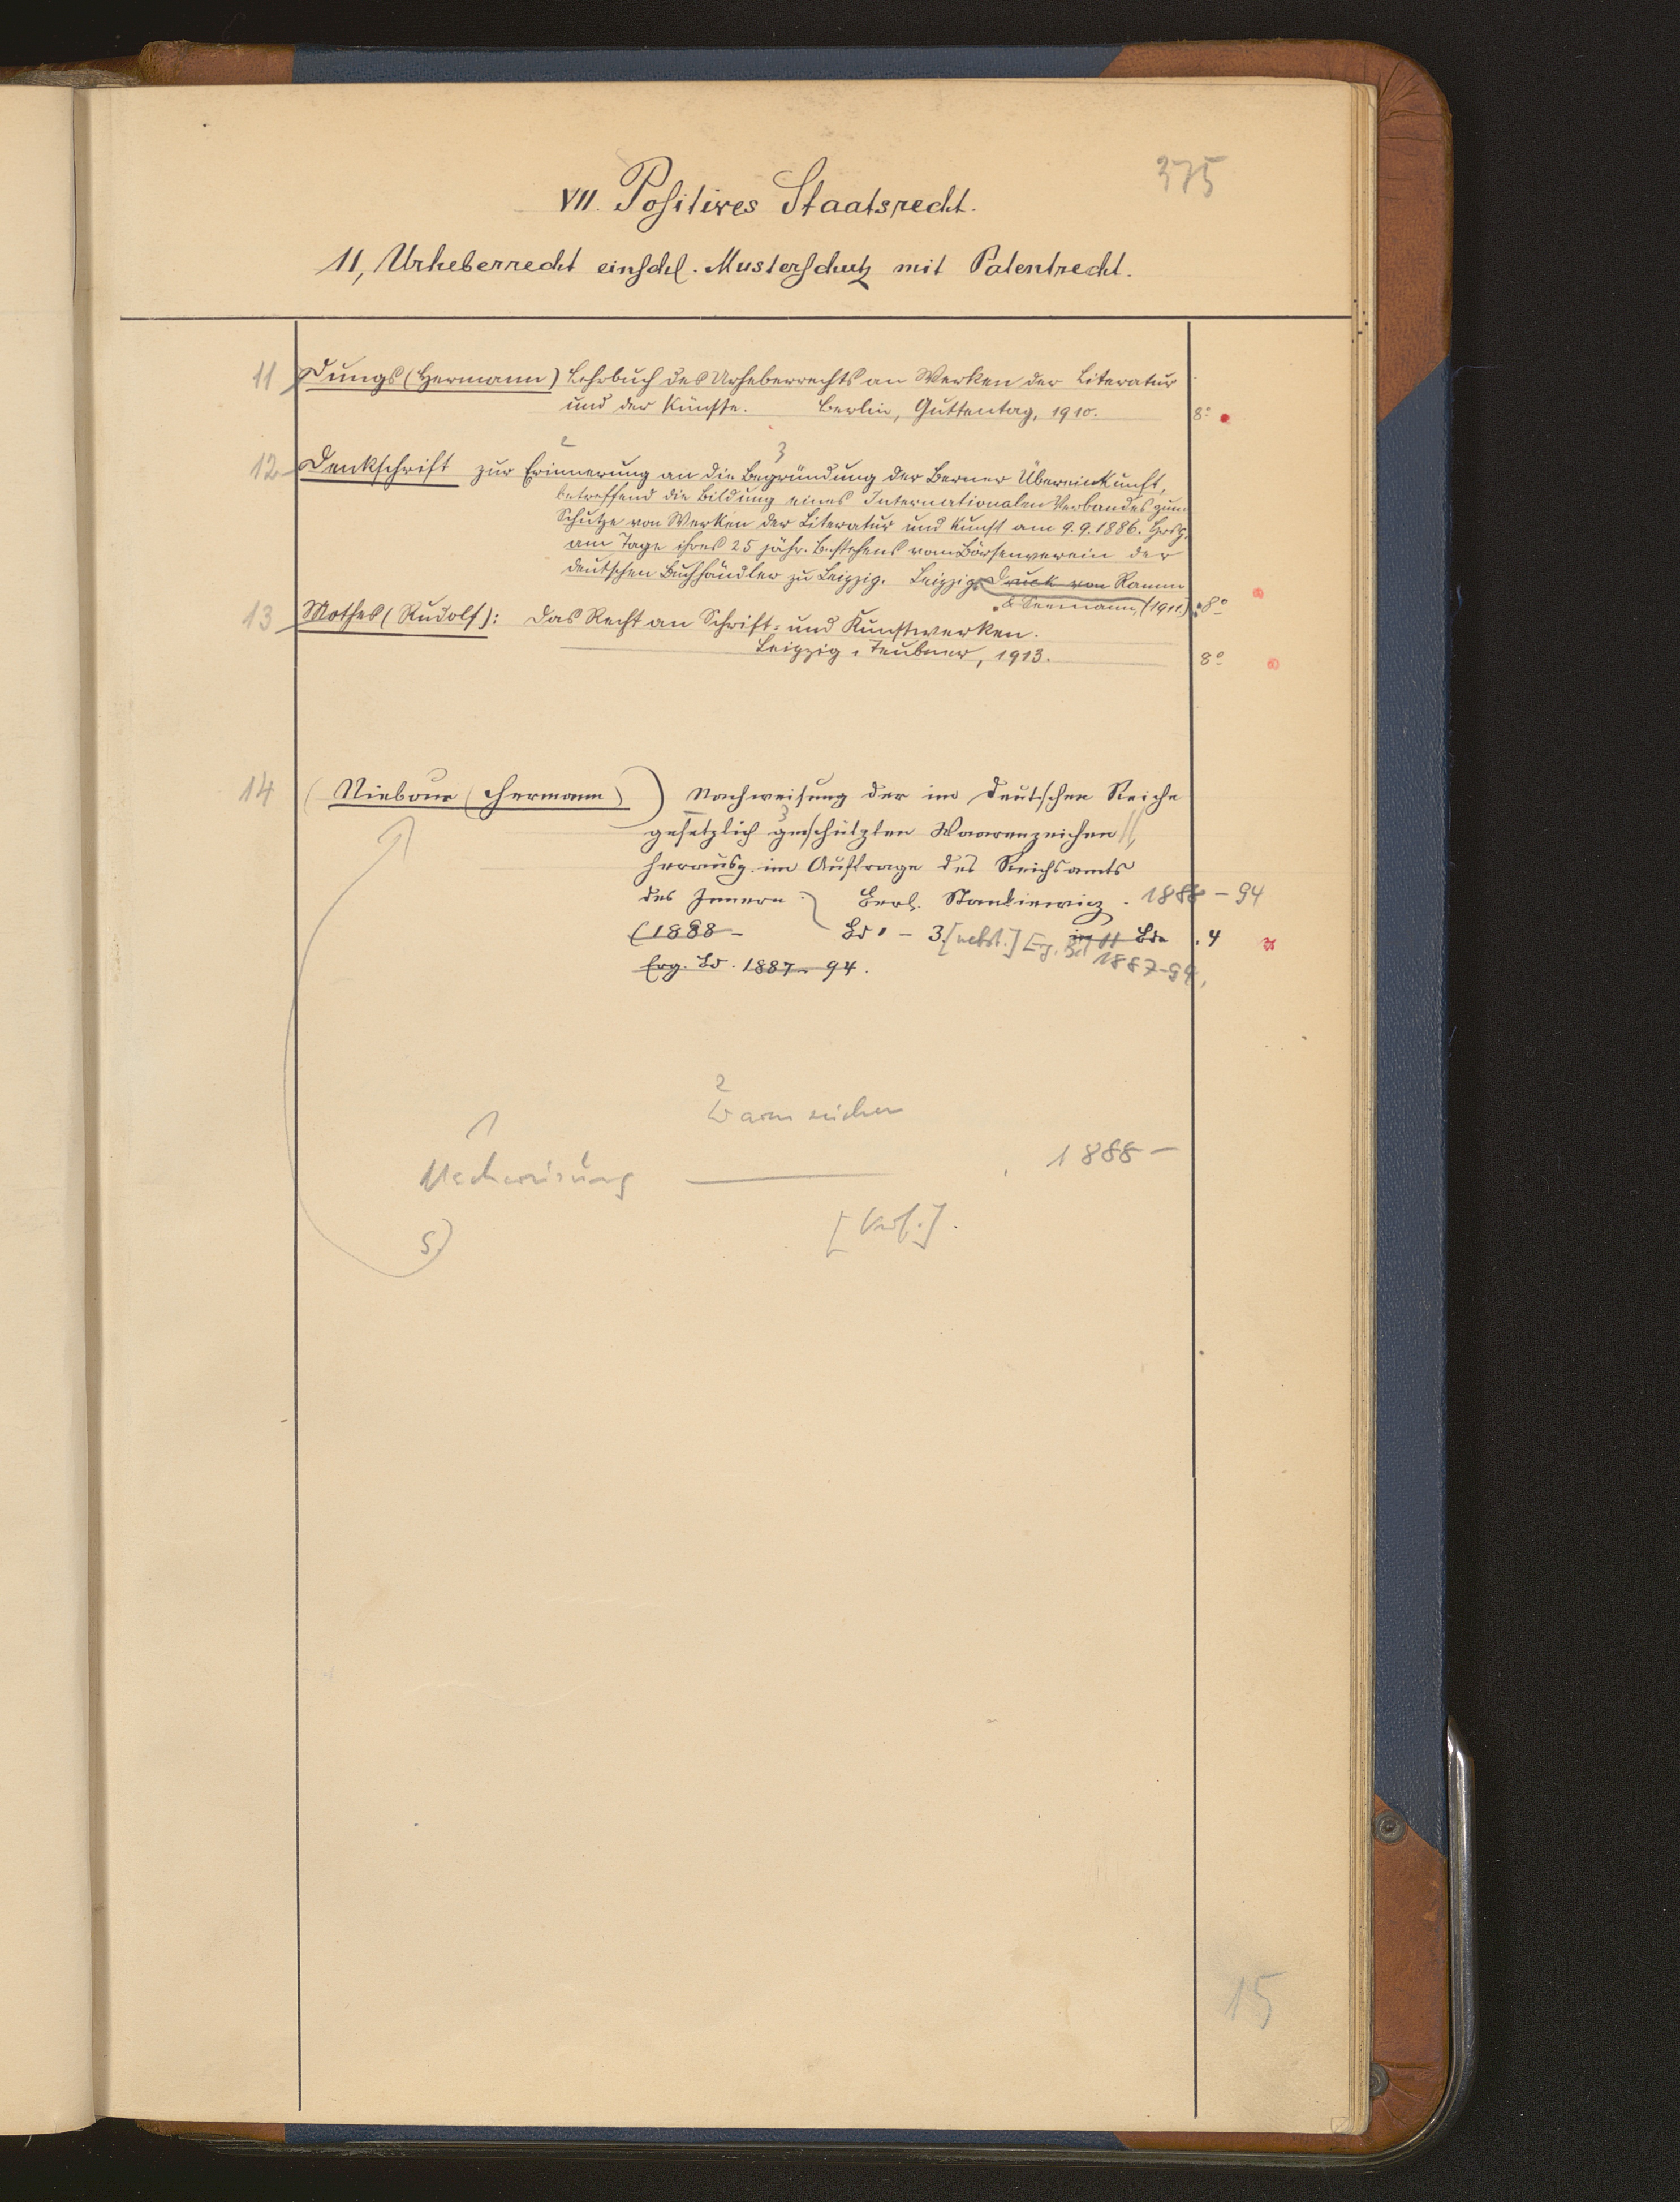 375
VII. Positives Staatsrecht.
11, Urheberrecht einschl. Musterschutz mit Patentrecht.
11 Dungs (Hermann) Lehrbuch des Urheberrechts an Werken der Literatur
und der Künste. Berlin, Guttentag, 1910. 8°
2 3
12 Denkschrift zur Erinnerung an die Begründung der Berner Übereinkunft,
betreffend die Bildung eines Internationalen Verbandes zum
Schutze von Werken der Literatur und Kunst am 9.9.1886. Hrsg.
am Tage ihres 25 jähr. Bestehens vom Börsenverein der
deutschen Buchhändler zu Leipzig. Leipzig, Druck von Ramm
& Seemann, (1911). 8°
13 Mothes (Rudolf): Das Recht an Schrift- und Kunstwerken.
Leipzig, Teubner, 1913. 8°
14 (Niebour (Hermann)) Nachweisung der im Deutschen Reiche
3
gesetzlich geschützten Waarenzeichen,
herausg. im Auftrage des Reichsamts
des Innern. Berl. Stankiewicz. 1888-94
(1888- Bd 1-3. [nebst.] Erg. Bd in 11 Bdn. 4
Erg. Bd. 1887-94. 1887-94,
2
1 Warenzeichen
Nachweisung 1888-
S) [Verf.].
15